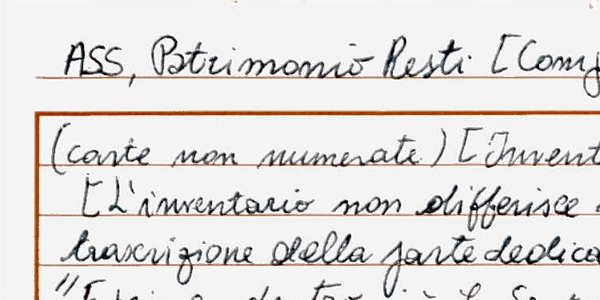 ASS, Patrimonio Resti [Comp
(carte non numerate) [Invent
[L'inventario non differisce
trascrizione della parte dedica